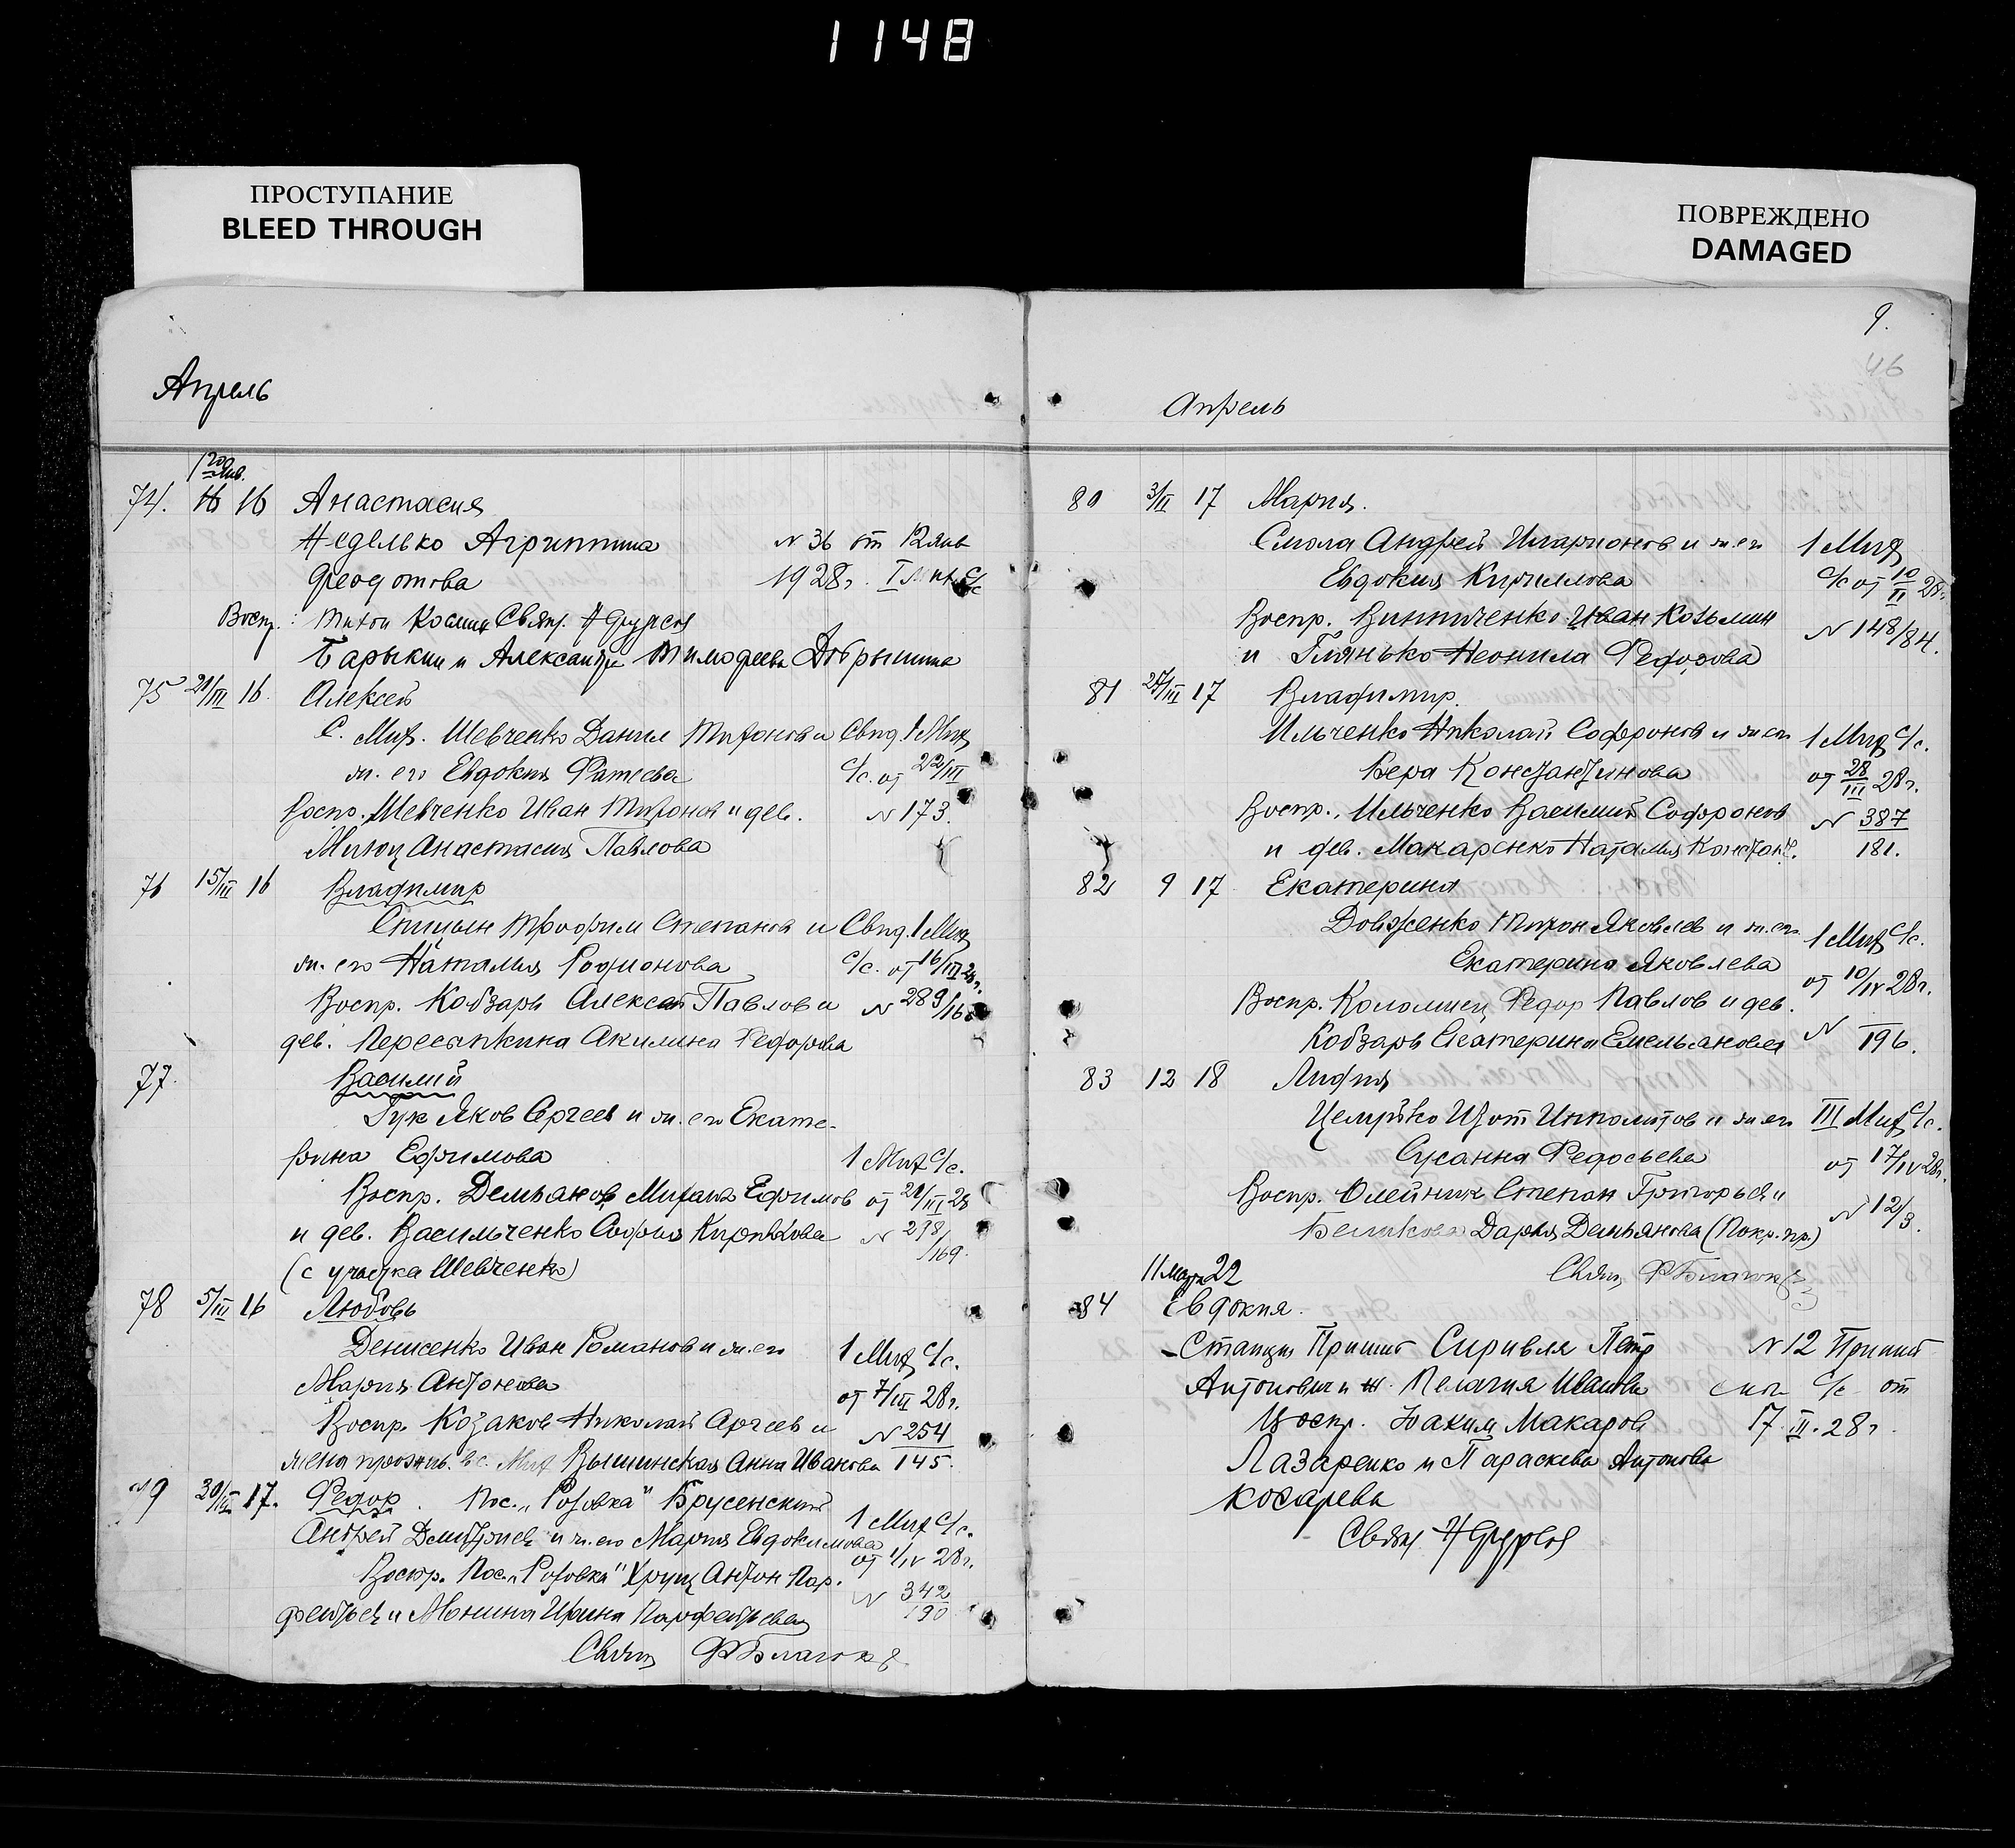 1148
ПРОСТУПАНИЕ
BLEED THROUGH
ПОВРЕЖДЕНО
DAMAGED
Апрель
1го Янв.
74. 16 16 Анастасия
Неделько Агриппина N 36 от 12 янв
Феодотова 1928г. I
Воспр: Тихон Космин Свящ.
Барыкин и Александра Тимофеева Добрынина
75 21/III 16. Алексей
С. Мих. Шевченко Данил Тихонов и Свид. 1 Мих
ж. его Евдокия Фатеева С/с. от 22/III
Воспр. Шевченко Иван Тихонов и дев. N 173.
Анастасия Павлова
76 15/III 16 Владимир
Спицын Трофим Степанов и Свид. 1 Мих
ж. его Наталия Родионова С/с. от 16/III 28г.
Воспр. Кобзарь Алексей Павлов и N 289/
дев. Пересыпкина Акилина Федорова
77. Василий
Гук Яков Сергеев и ж. его Екате-
рина Ефимова 1 Мих С/с.
Воспр. Демьянов Михаил Ефимов от 21/III 28
и дев. Васильченко София Кирикова N 298/169.
(с участка Шевченко)
78 5/III 16 Любовь
Денисенко Иван Романов и ж. его 1 Мих С/с.
Мария Антонова от 7/III 28г.
Воспр. Козаков Николай Сергеев и N 254
Вышинская Анна Иванова 145.
79 30/III 17. Федор. Пос. „Ротовка" Брусенский
1 Мих С/с.
Андрей Дмитриев и ж. его Мария Евдокимова
от 1/IV 28г.
Воспр. Пос. „Ротовка" Хрущ Антон Пар.
N 342
190
фентьев и Монина Ирина Парфентьева
Свящ ФБлагон
9.
46
Апрель
80 3/II 17 Мария.
Смола Андрей Иларионов и ж. его 1 Мих
Евдокия Кириллова С/с от 10/II 28г.
Воспр. Винниченко Иван Козьмин
N 148/84.
и Глянько Неонила Федорова
81 27/III 17 Владимир.
Ильченко Николай Софронов и ж его 1 Мих С/с.
Вера Константинова от 28/III 28г.
Воспр. Ильченко Василий Софронов N 387
и дев. Макаренко Наталия Констант. 181.
82 9 17 Екатерина
Довженко Тихон Яковлев и ж. его 1 Мих С/с.
Екатерина Яковлева
от 10/IV 28г.
Воспр. Коломиец Федор Павлов и дев.
Кобзарь Екатерина Емельянова N 196.
83 12 18 Лидия
Изот Ипполитов и ж его III Мих С/с.
Сусанна Федосьева от 17/IV 28г.
Воспр. Олейник Степан Григорьев и
N 12/3.
Беликова Дария Демьянова (Покр. пр.)
Свящ ФБлагон
11 Марта 22
84 Евдокия.
Станции Пришиб Сиривля Петр N 12 Пришиб
Антонович и ж. Пелагия Иванова С/с от
Воспр. Иоаким Макаров 17.III.28г.
Лазаренко и Параскева Антонова
Косарева
Свящ